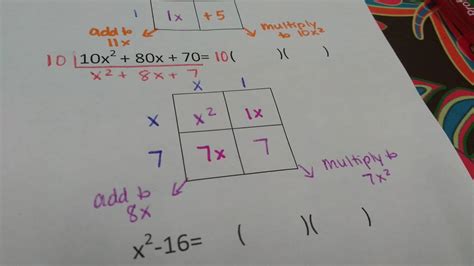 1 1x +5
add to 11x
multiply to 10x²
10 10x² + 80x + 70= 10( )( )
x² + 8x + 7
x 1
x x² 1x
7 7x 7
add to 8x
multiply to 7x²
x²-16= ( )( )